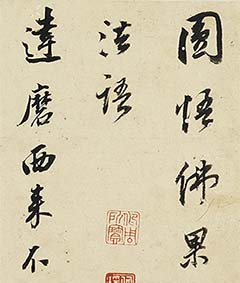 圓悟佛果
法語
達磨西來不